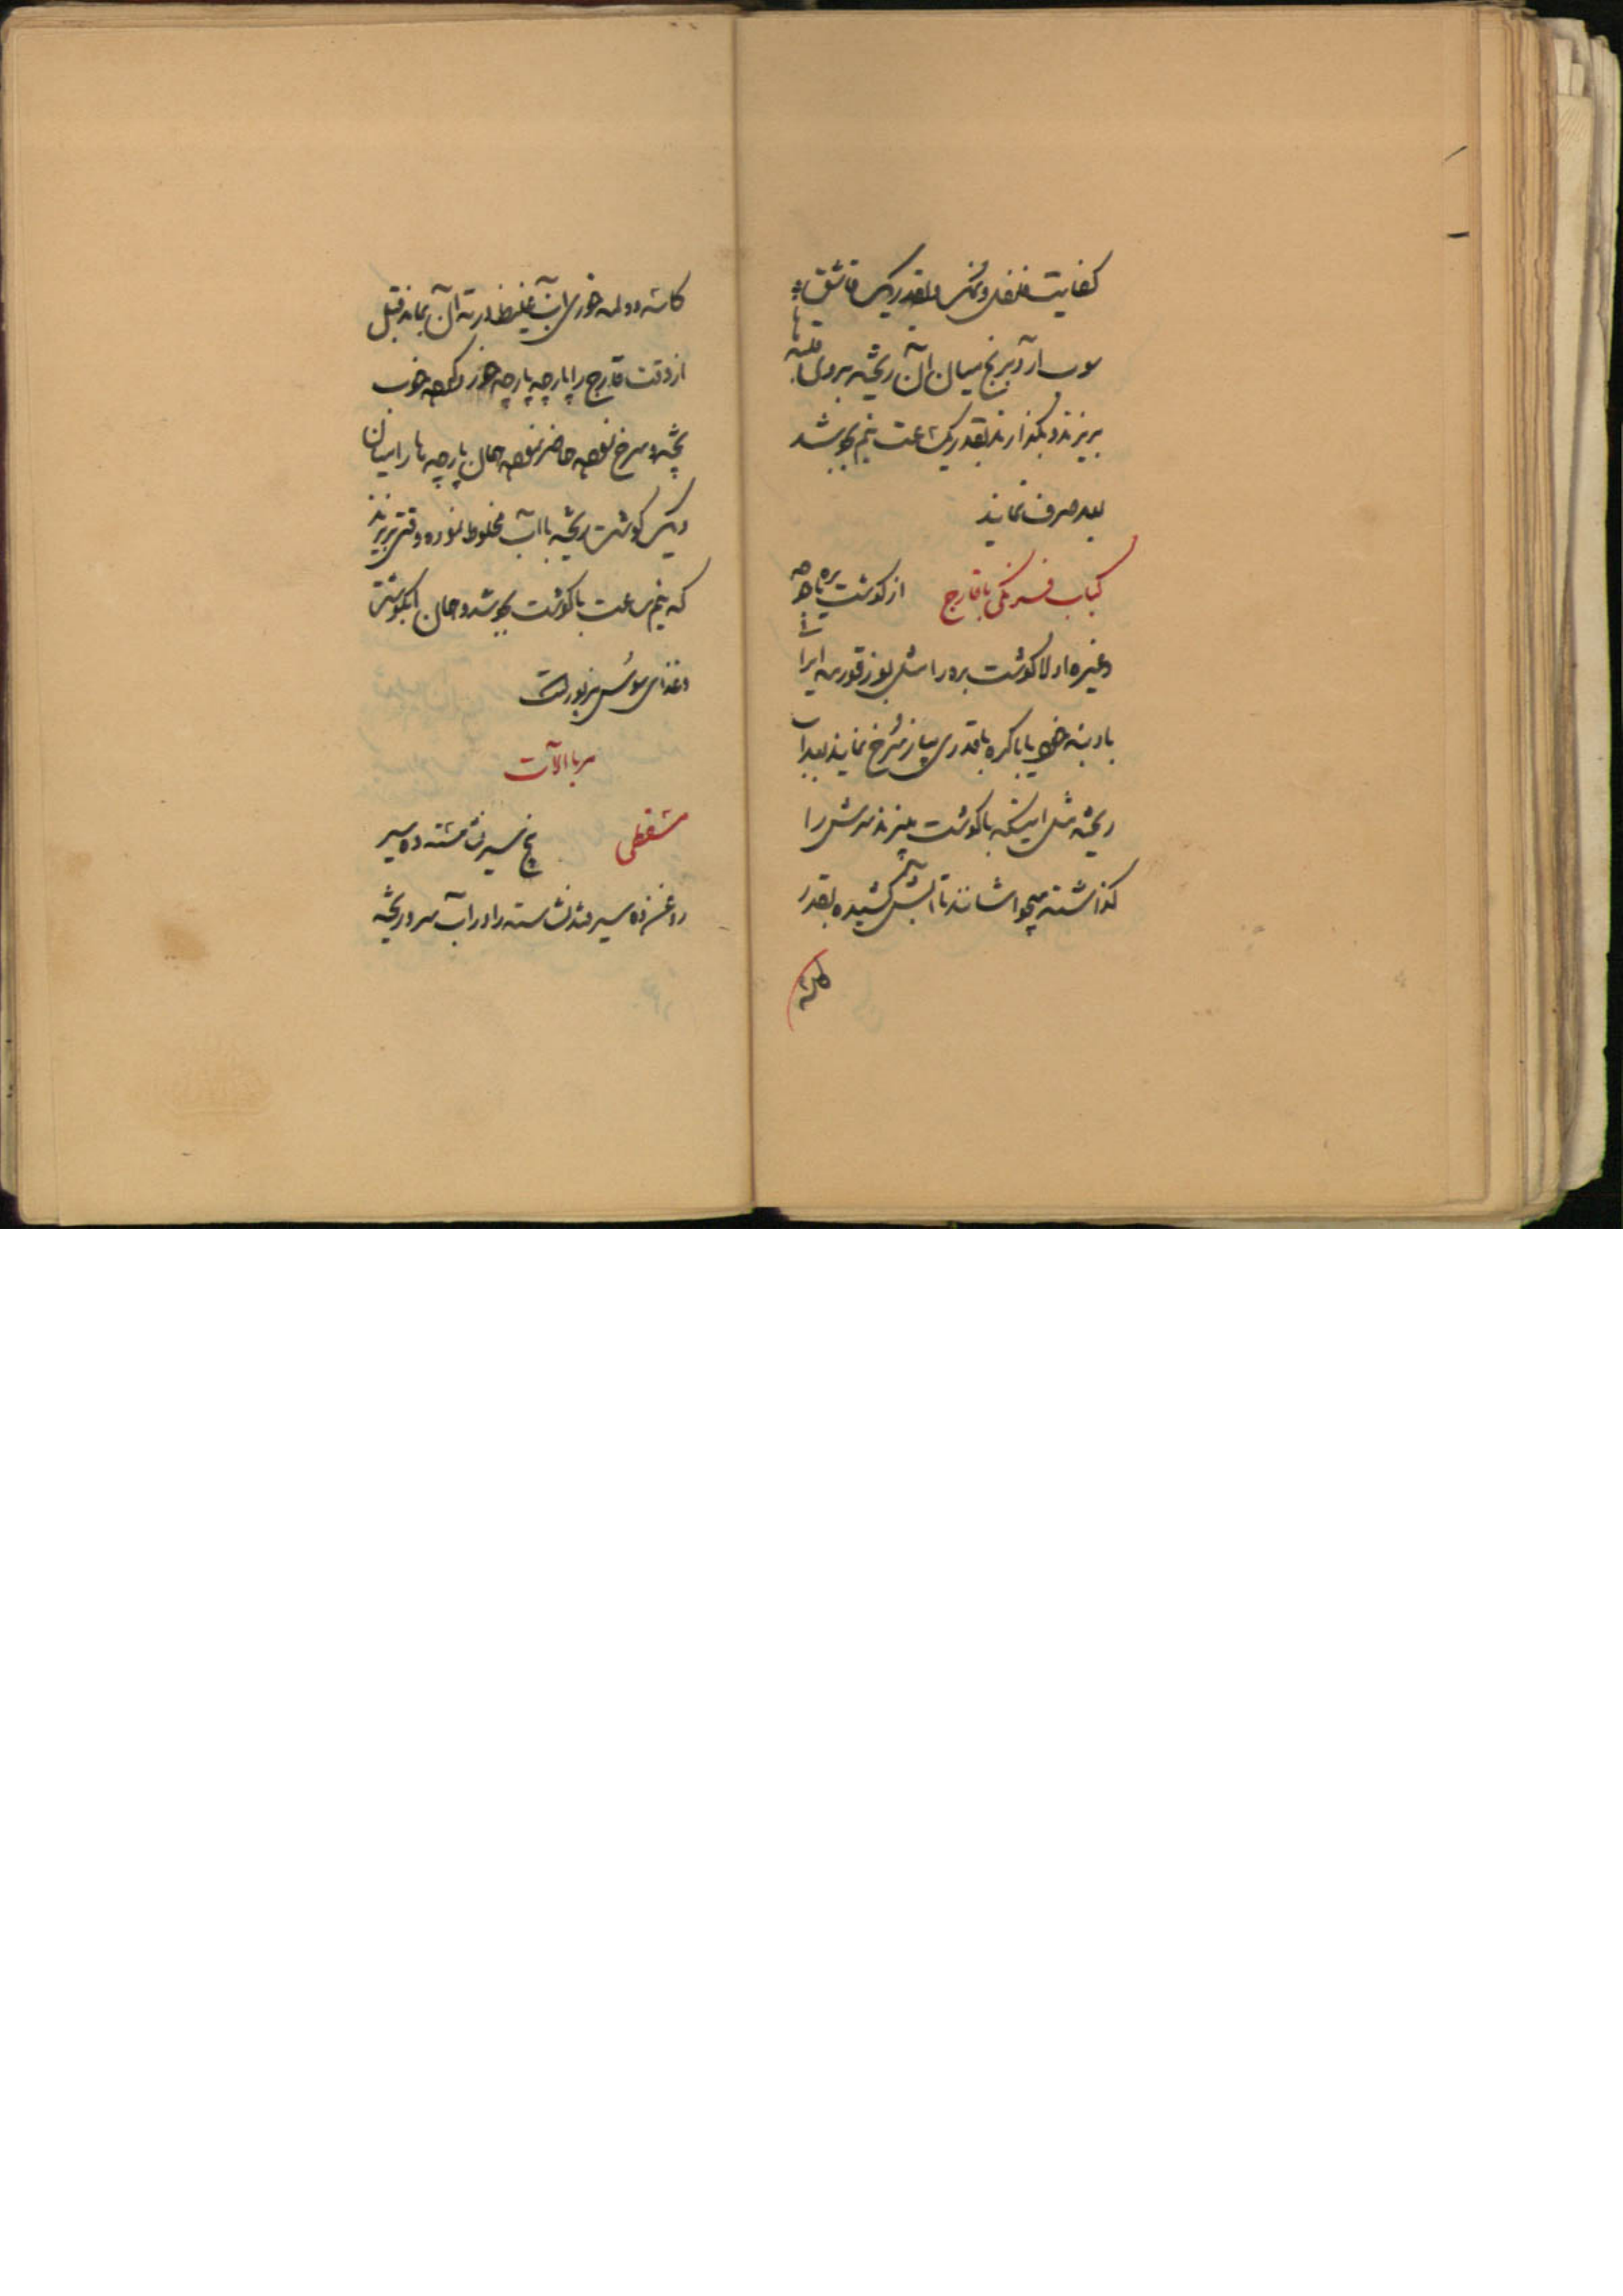 کفایت فلفل و نمک و بقدر یک قاشق
سوپ آرد برنج میان آن ریخته بروی قلیه‌ها
بریزند و بگذارند بقدر یک ساعت نیم بجوشد
بعد صرف نمایند
کباب فرنگی با قارچ از گوشت بره یا
و غیره اولا گوشت بره را مثل قورمه ایرا
با کره با قدری پیاز سُرخ نمایند بعد آب
ریخته مثل اینکه با گوشت میپزند سرش را
گذاشته میجوشانند تا آبش کشیده بقدر
کاسه
کاسه دولمه خوری آب غلیظ در ته آن بماند قبل
از وقت قارچ را پارچه پارچه کرده خوب
پخته و سرخ نموده حاضر نموده همان پارچه ها را میان
دیک گوشت ریخته با آب مخلوط نموده وقتی بریزند
که نیم ساعت با گوشت بجوشد و همان آبگوشتش
و غذای سوس مزبور است
مرباالآت
مسقطی پنج سیر نشاسته ده سیر
روغن ده سیر قند نشاسته را در آب سرد ریخته